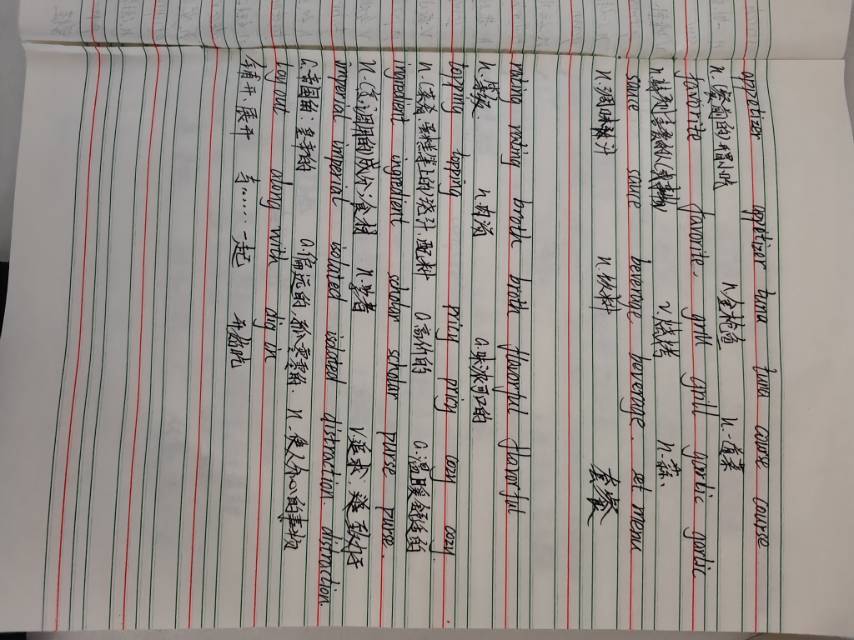 appetizer appetizer tuna tuna course course
n.餐前的开胃小吃 n.金枪鱼 n.一道菜
favorite favorite. grill grill garlic garlic
n.特别喜爱的人或事物 v.烧烤 n.蒜
sauce sauce beverage beverage. set menu
n.调味酱汁 n.饮料 套餐
rating rating broth broth flavorful flavorful
n.等级 n.肉汤 a.味浓可口的
topping topping pricy pricy cozy cozy
n.(菜肴、蛋糕等上的)浇汁,配料 a.高价的 a.温暖舒适的
ingredient ingredient scholar scholar purse purse.
n.(烹调用的)成分;食材 n.学者 v.追求;追致力于
imperial imperial isolated isolated distraction distraction
a.帝国的;皇帝的 a.偏远的,孤零零的. n.使人分心的事物
lay out along with dig in
铺开,展开 与……一起 开始吃